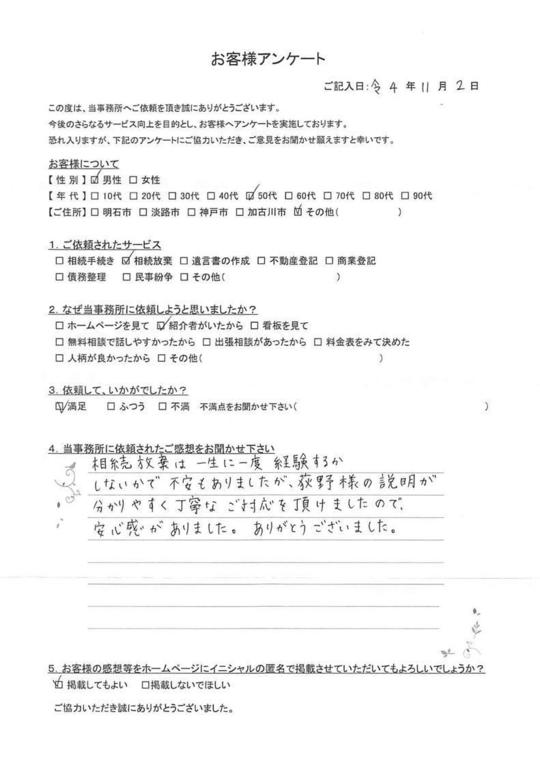 お客様アンケート
ご記入日:令 4 年 11 月 2 日
この度は、当事務所へご依頼を頂き誠にありがとうございます。
今後のさらなるサービス向上を目的とし、お客様へアンケートを実施しております。
恐れ入りますが、下記のアンケートにご協力いただき、ご意見をお聞かせ願えますと幸いです。
お客様について
【 性 別 】☑ 男性 □ 女性
【 年 代 】□ 10代 □ 20代 □ 30代 □ 40代 ☑ 50代 □ 60代 □ 70代 □ 80代 □ 90代
【ご住所】□ 明石市 □ 淡路市 □ 神戸市 □ 加古川市 ☑ その他( )
1. ご依頼されたサービス
□ 相続手続き ☑ 相続放棄 □ 遺言書の作成 □ 不動産登記 □ 商業登記
□ 債務整理 □ 民事紛争 □ その他( )
2. なぜ当事務所に依頼しようと思いましたか?
□ ホームページを見て ☑ 紹介者がいたから □ 看板を見て
□ 無料相談で話しやすかったから □ 出張相談があったから □ 料金表をみて決めた
□ 人柄が良かったから □ その他( )
3. 依頼して、いかがでしたか?
☑ 満足 □ ふつう □ 不満 不満点をお聞かせ下さい( )
4. 当事務所に依頼されたご感想をお聞かせ下さい
相続放棄は一生に一度 経験するか
しないかで 不安もありましたが、荻野様の説明が
分かりやすく丁寧な ご対応を頂けましたので、
安心感がありました。 ありがとうございました。
5. お客様の感想等をホームページにイニシャルの匿名で掲載させていただいてもよろしいでしょうか?
☑ 掲載してもよい □掲載しないでほしい
ご協力いただき誠にありがとうございました。